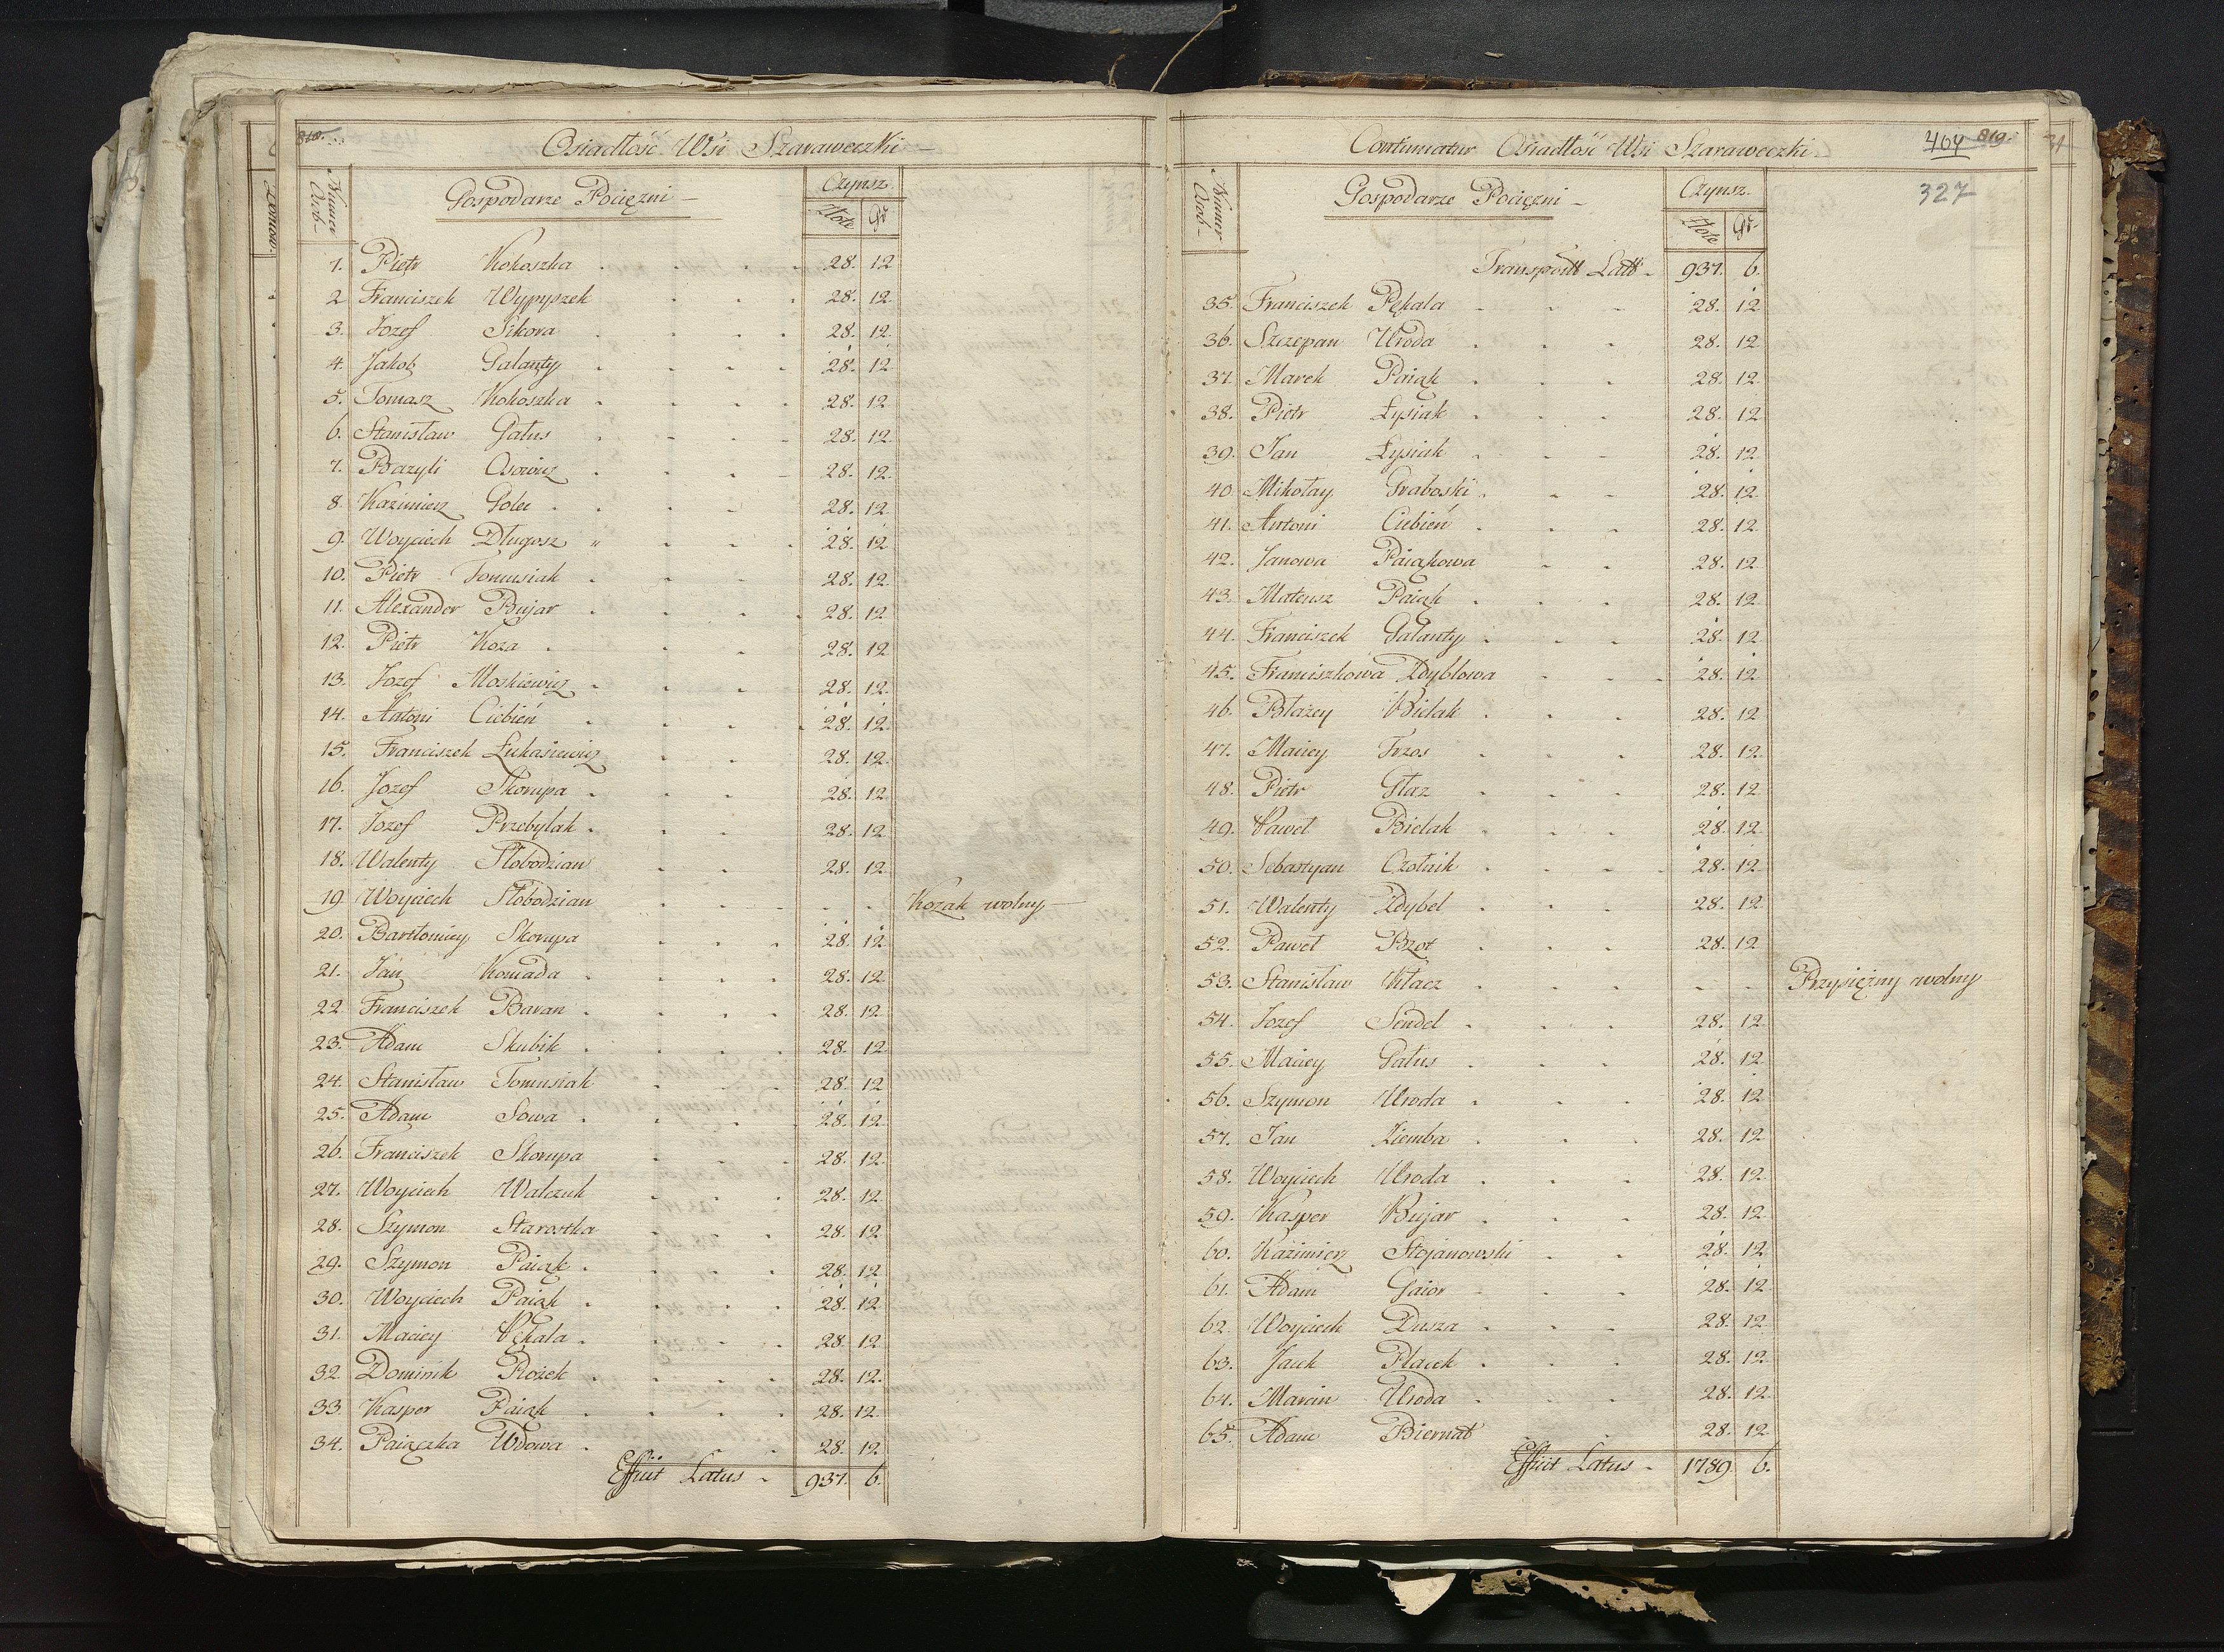 818.
Osiadłość Wsi Szaraweczki
Numer Osob
Gospodarze Pociężni
Czynsz
Złote Gr
1. Piotr Kokoszka 28. 12
2 Franciszek Wypyszek 28. 12
3. Jozef Sikora 28. 12.
4. Jakob Galanty 28. 12
5. Tomasz Kokoszka 28. 12
6. Stanisław Gałus 28. 12.
7. Bazyli 28. 12.
8 Kazimierz Golec 28. 12
9. Woyciech Długosz 28. 12
10. Piotr Tomusiak 28. 12.
11. Alexander Bujar 28. 12
12. Piotr Koza 28. 12
13. Jozef Moskiewicz 28. 12.
14. Antoni Ciebień 28. 12.
15. Franciszek Łukasiewicz 28. 12.
16. Jozef Skorupa 28. 12
17. Jozef Przebylak 28. 12
18. Walenty Słobodzian 28. 12
19 Woyciech Słobodzian Kozak wolny
20. Bartłomiey Skorupa 28. 12.
21. Jan Komada 28. 12.
22 Franciszek Baran 28. 12.
23. Adam Skubik 28. 12
24. Stanisław Tomusiak 28. 12
25. Adam Sowa 28. 12
26. Franciszek Skorupa 28. 12.
27. Woyciech Walczuk 28. 12
28. Szymon Starostka 28. 12
29. Szymon Paiąk 28. 12
30. Woyciech Paiąk 28. 12
31. Maciey Pękala 28. 12
32 Dominik Rożek 28. 12.
33. Kasper Paiąk 28. 12.
34. Paiączka Wdowa 28. 12.
Efficit Latus 937. 6.
Continuatur Osiadłość Wsi Szaraweczki
404 819.
31
327
Numer Osob
Gospodarze Pociężni
Czynsz.
Złote Gr.
Transport Latt. 937. 6.
35. Franciszek Pękala 28. 12
36. Szczepan Uroda 28. 12
37. Marek Paiąk 28. 12
38. Piotr Łysiak 28. 12
39. Jan Łysiak 28. 12
40. Mikołay Graboski 28. 12.
41. Antoni Ciebień 28. 12
42. Janowa Paiąkowa 28. 12
43. Mateusz Paiąk 28. 12
44. Franciszek Galanty 28. 12
45. Franciszkowa Zdyblowa 28. 12
46. Błazey Bielak 28. 12
47. Maciey Trzos 28. 12
48. Piotr Głaz 28. 12
49. Paweł Bielak 28. 12
50. Sebastyan Czołnik 28. 12
51. Walenty Zdybel 28. 12
52. Paweł Bzot 28. 12
53. Stanisław Kłacz Przysięzny wolny
54. Jozef Sendel 28. 12
55. Maciey Gałus 28. 12
56. Szymon Uroda 28. 12
57. Jan Ziemba 28. 12
58. Woyciech Uroda 28. 12
59. Kasper Bujar 28. 12
60. Kazimierz Stojanowski 28. 12
61. Adam Gaior 28. 12
62. Woyciech Dusza 28. 12
63. Jacek Placek 28. 12
64. Marcin Uroda 28. 12
65. Adam Biernat 28. 12
Efficit Latus 1789 6.